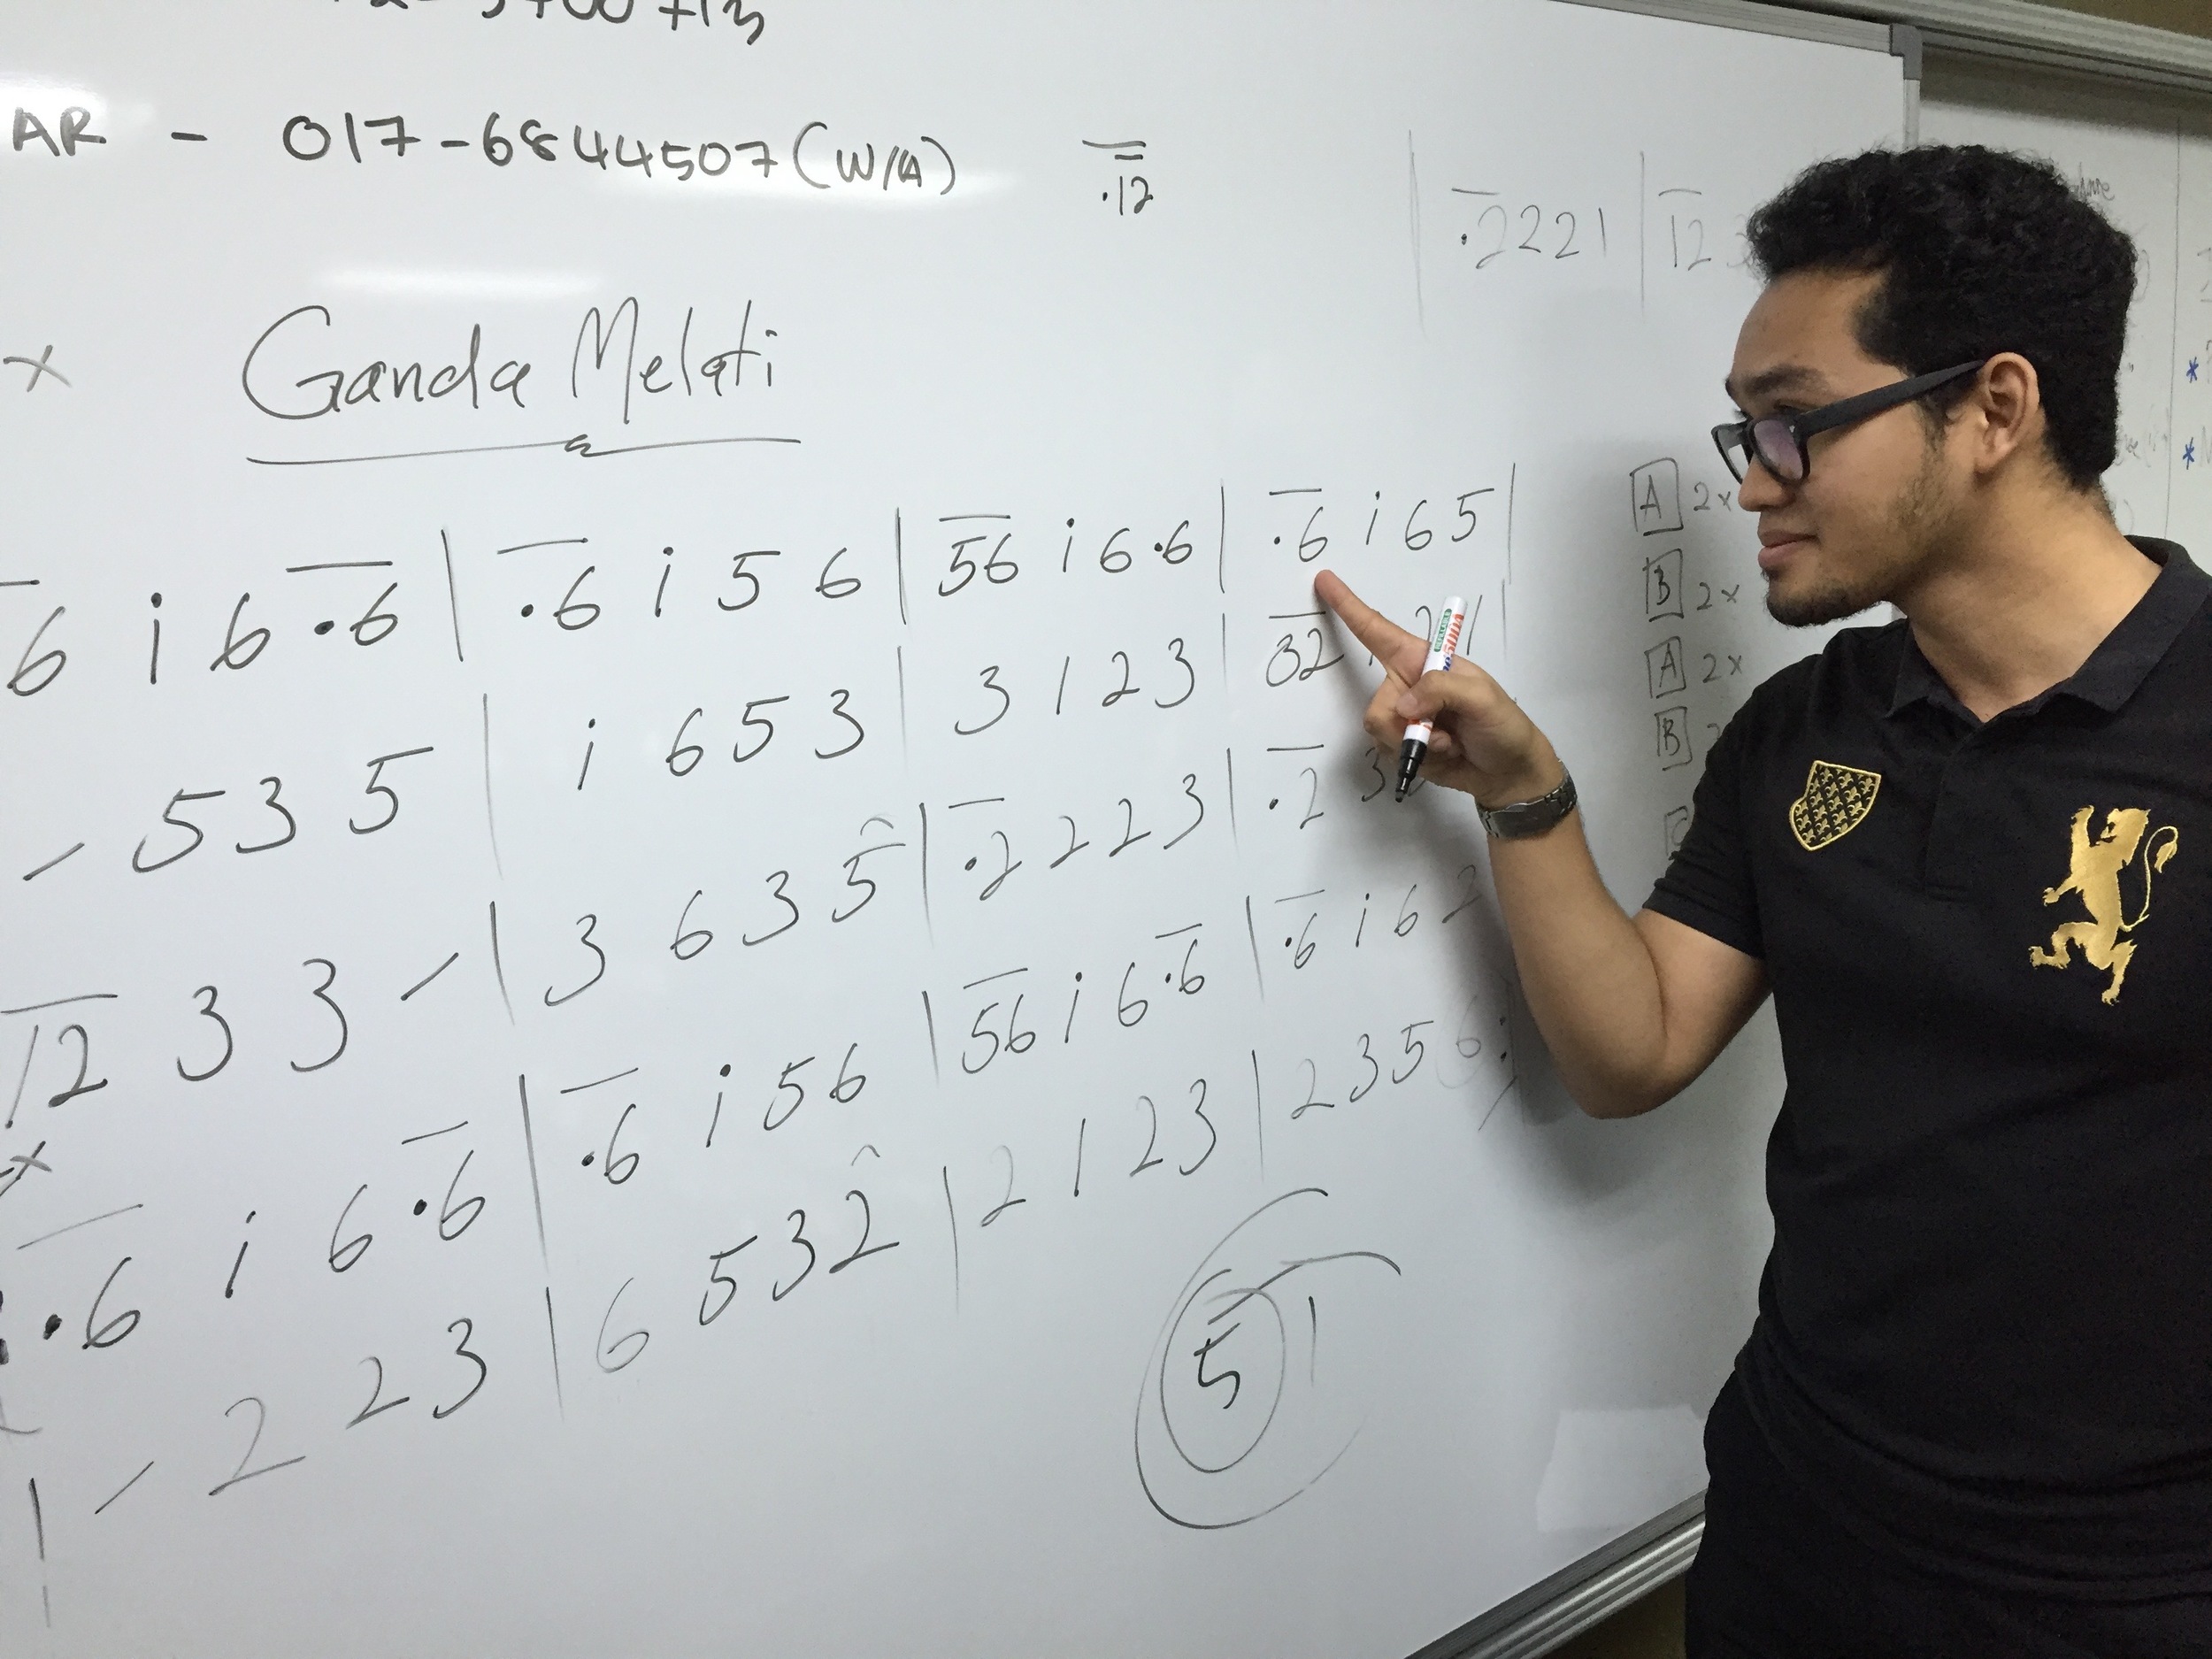 AR - 017-6844507 (W/A)
.12
.2221 | 12
x Ganda Melati
6 i 6 .6 | .6 i 5 6 | 56 i 6 .6 | .6 i 6 5 |
- 5 3 5 | i 6 5 3 | 3 1 2 3 | 32
12 3 3 - | 3 6 3 5 | .2 2 2 3 | .2 3
x
.6 i 6 .6 | .6 i 5 6 | 56 i 6 .6 | .6 i 6 2
1 - 2 2 3 | 6 5 3 2 | 2 1 2 3 | 2 3 5 6
5
A 2x
B 2x
A 2x
B